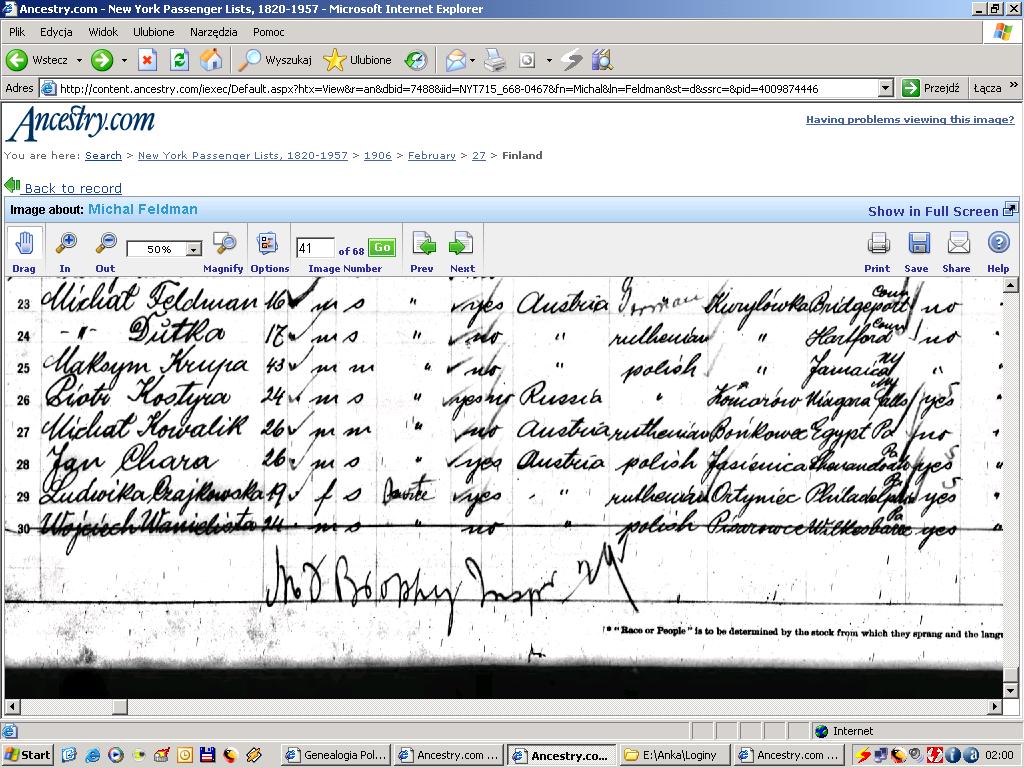 Ancestry.com - New York Passenger Lists, 1820-1957 - Microsoft Internet Explorer
Plik Edycja Widok Ulubione Narzędzia Pomoc
Wstecz Wyszukaj Ulubione
Adres http://content.ancestry.com/iexec/Default.aspx?htx=View&r=an&dbid=7488&iid=NYT715_668-0467&fn=Michal&ln=Feldman&st=d&ssrc=&pid=4009874446 Przejdź Łącza »
Ancestry.com
Having problems viewing this image?
You are here: Search > New York Passenger Lists, 1820-1957 > 1906 > February > 27 > Finland
Back to record
Image about: Michal Feldman Show in Full Screen
50% 41 of 68 Go
Drag In Out Magnify Options Image Number Prev Next Print Save Share Help
23 Michał Feldman 16 m s " yes Austria German Kiwryłówka Bridgeport Conn no
24 -"- Dutka 17 m s " no " ruthenian " Hartford Conn no
25 Maksym Krupa 43 m m " no " polish " Jamaica NY "
26 Piotr Kostyra 24 m s " yes no Russia " Komarów Niagara Falls NY yes
27 Michał Kowalik 26 m m " no Austria ruthenian Bonkowce Egypt Pa no
28 Jan Chara 26 m s " yes Austria polish Jasienica Pa yes
29 Ludwika Czajkowska 19 f s yes " ruthenian Ortyniec Philadelphia Pa yes
30 Wojciech 24 m s no " polish Pisarowce Wilkesbarre Pa yes
* "Race or People" is to be determined by the stock from which they sprang and the lang
Internet
Start Genealogia Pol... Ancestry.com ... Ancestry.co... E:\Anka\Loginy Ancestry.com ... 02:00